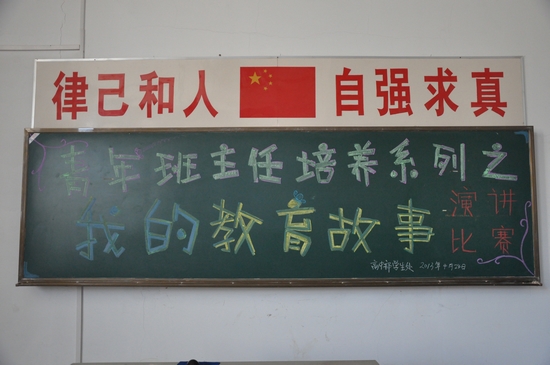 律己和人 自强求真
青年班主任培养系列之
我的教育故事 演讲
比赛
高中部学生处 2013年